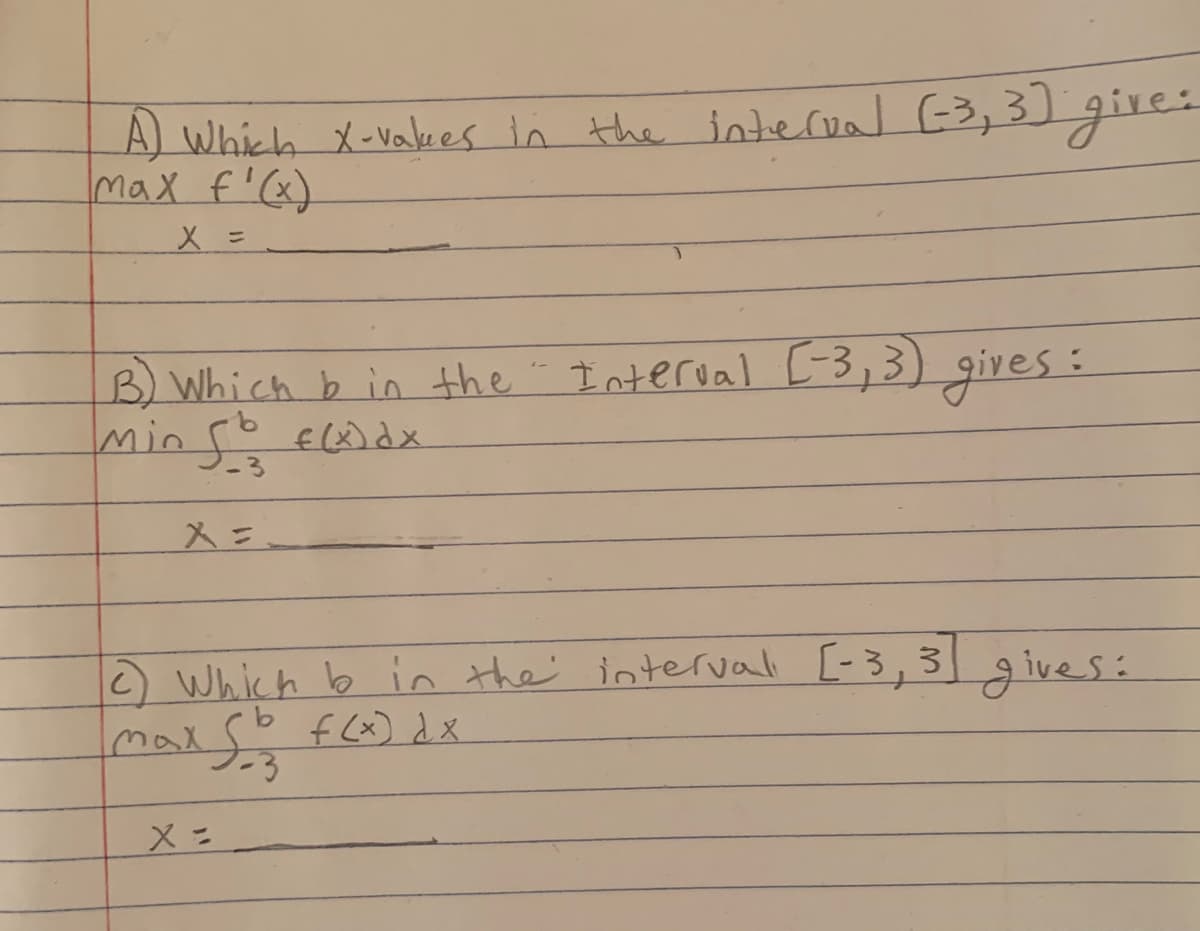 A) Which x-values in the interval [-3, 3] give:
max f'(x)
x = ____
B) Which b in the Interval [-3, 3) gives:
Min ∫_{-3}^{b} f(x) dx
x = ____
C) Which b in the interval [-3, 3] gives:
max ∫_{-3}^{b} f(x) dx
x = ____